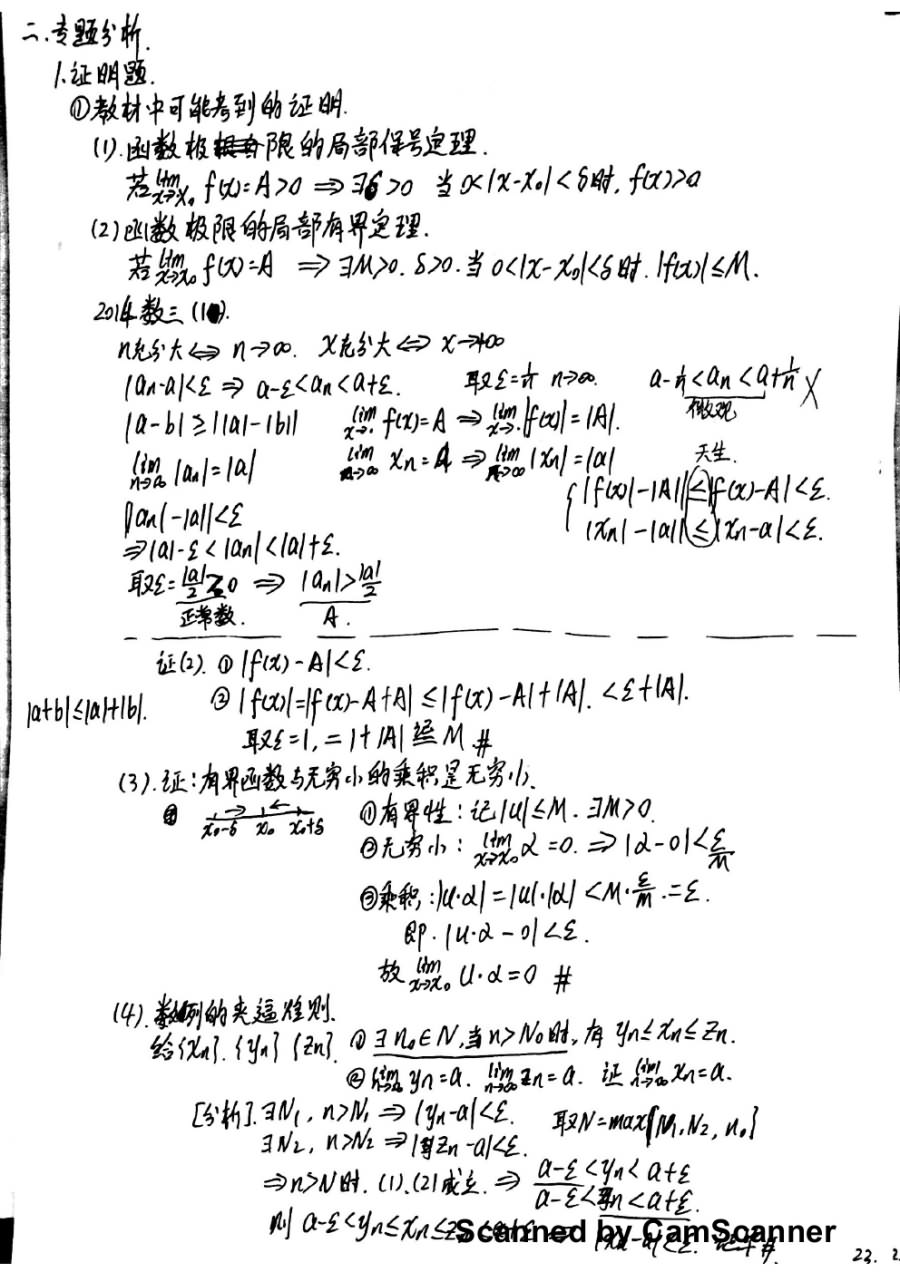 二.专题分析.
1.证明题.
①教材中可能考到的证明.
(1).函数极限的局部保号定理.
若lim x→x₀ f(x)=A>0 ⇒∃δ>0 当0<|x-x₀|<δ时, f(x)>0
(2)函数极限的局部有界定理.
若lim x→x₀ f(x)=A ⇒∃M>0. δ>0. 当0<|x-x₀|<δ时. |f(x)|≤M.
2014年数三(1).
n充分大⇔n→∞. x充分大⇔x→+∞
|an-a|<ε ⇒ a-ε<an<a+ε. 取ε=1/n n→∞. a-1/n<an<a+1/n ×
微观
|a-b|≥||a|-|b|| lim x→· f(x)=A ⇒lim x→· |f(x)|=|A|.
lim n→∞ |an|=|a| lim n→∞ xn=a ⇒lim n→∞ |xn|=|a| 天生.
||f(x)|-|A||≤|f(x)-A|<ε.
||an|-|a||<ε ||xn|-|a||≤|xn-a|<ε.
⇒|a|-ε<|an|<|a|+ε.
取ε=|a|/2>0 ⇒ |an|>|a|/2
正常数. A.
证(2). ①|f(x)-A|<ε.
|a+b|≤|a|+|b|. ②|f(x)|=|f(x)-A+A|≤|f(x)-A|+|A|.<ε+|A|.
取ε=1,=1+|A| 记 M #
(3).证:有界函数与无穷小的乘积是无穷小.
x₀-δ x₀ x₀+δ ①有界性:记|u|≤M.∃M>0.
②无穷小: lim x→x₀ α=0.⇒|α-0|<ε/M
③乘积:|u·α|=|u|·|α|<M·ε/M.=ε.
即.|u·α-0|<ε.
故 lim x→x₀ u·α=0 #
(4).数列的夹逼准则.
给{xn}.{yn}{zn}. ①∃n₀∈N,当n>N₀时,有yn≤xn≤zn.
②lim n→∞ yn=a. lim n→∞ zn=a. 证lim n→∞ xn=a.
[分析].∃N₁, n>N₁⇒|yn-a|<ε. 取N=max{N₁,N₂,n₀}
∃N₂, n>N₂⇒|zn-a|<ε.
⇒n>N时.(1).(2)成立.⇒ a-ε<yn<a+ε
a-ε<zn<a+ε.
则 a-ε<yn≤xn≤z
Scanned by CamScanner
23.